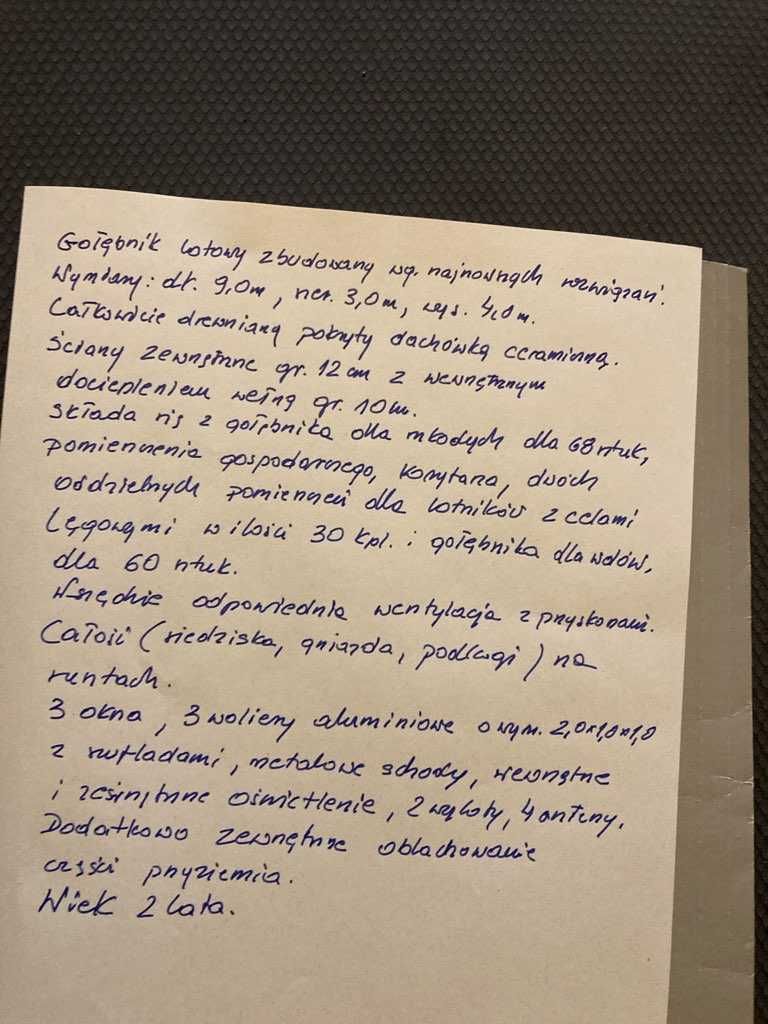 Gołębnik lotowy zbudowany wg. najnowszych rozwiązań.
Wymiary: dł. 9,0m, szer. 3,0m, wys. 4,0m.
Całkowicie drewniany pokryty dachówką ceramiczną.
Ściany zewnętrzne gr. 12cm z wewnętrznym
dociepleniem wełną gr. 10cm.
Składa się z gołębnika dla młodych dla 68 sztuk,
pomieszczenia gospodarczego, korytarza, dwóch
oddzielnych pomieszczeń dla lotników z celami
lęgowymi w ilości 30 kpl. i gołębnika dla wdów,
dla 60 sztuk.
Wszędzie odpowiednia wentylacja z
Całość (siedziska, gniazda, podłogi) na
rusztach.
3 okna, 3 woliery aluminiowe o wym. 2,0x1,0x1,0
z szufladami, metalowe schody, wewnętrzne
i zewnętrzne oświetlenie, 2 wyloty, 4 anteny.
Dodatkowo zewnętrzne oblachowanie
części przyziemia.
Wiek 2 lata.